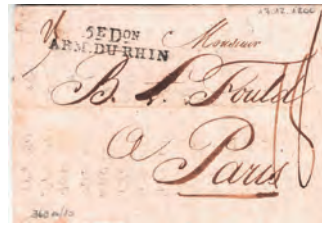 13.12.1800
5E DON
ARM. DU RHIN
Monsieur
B. L. Fould
a
Paris